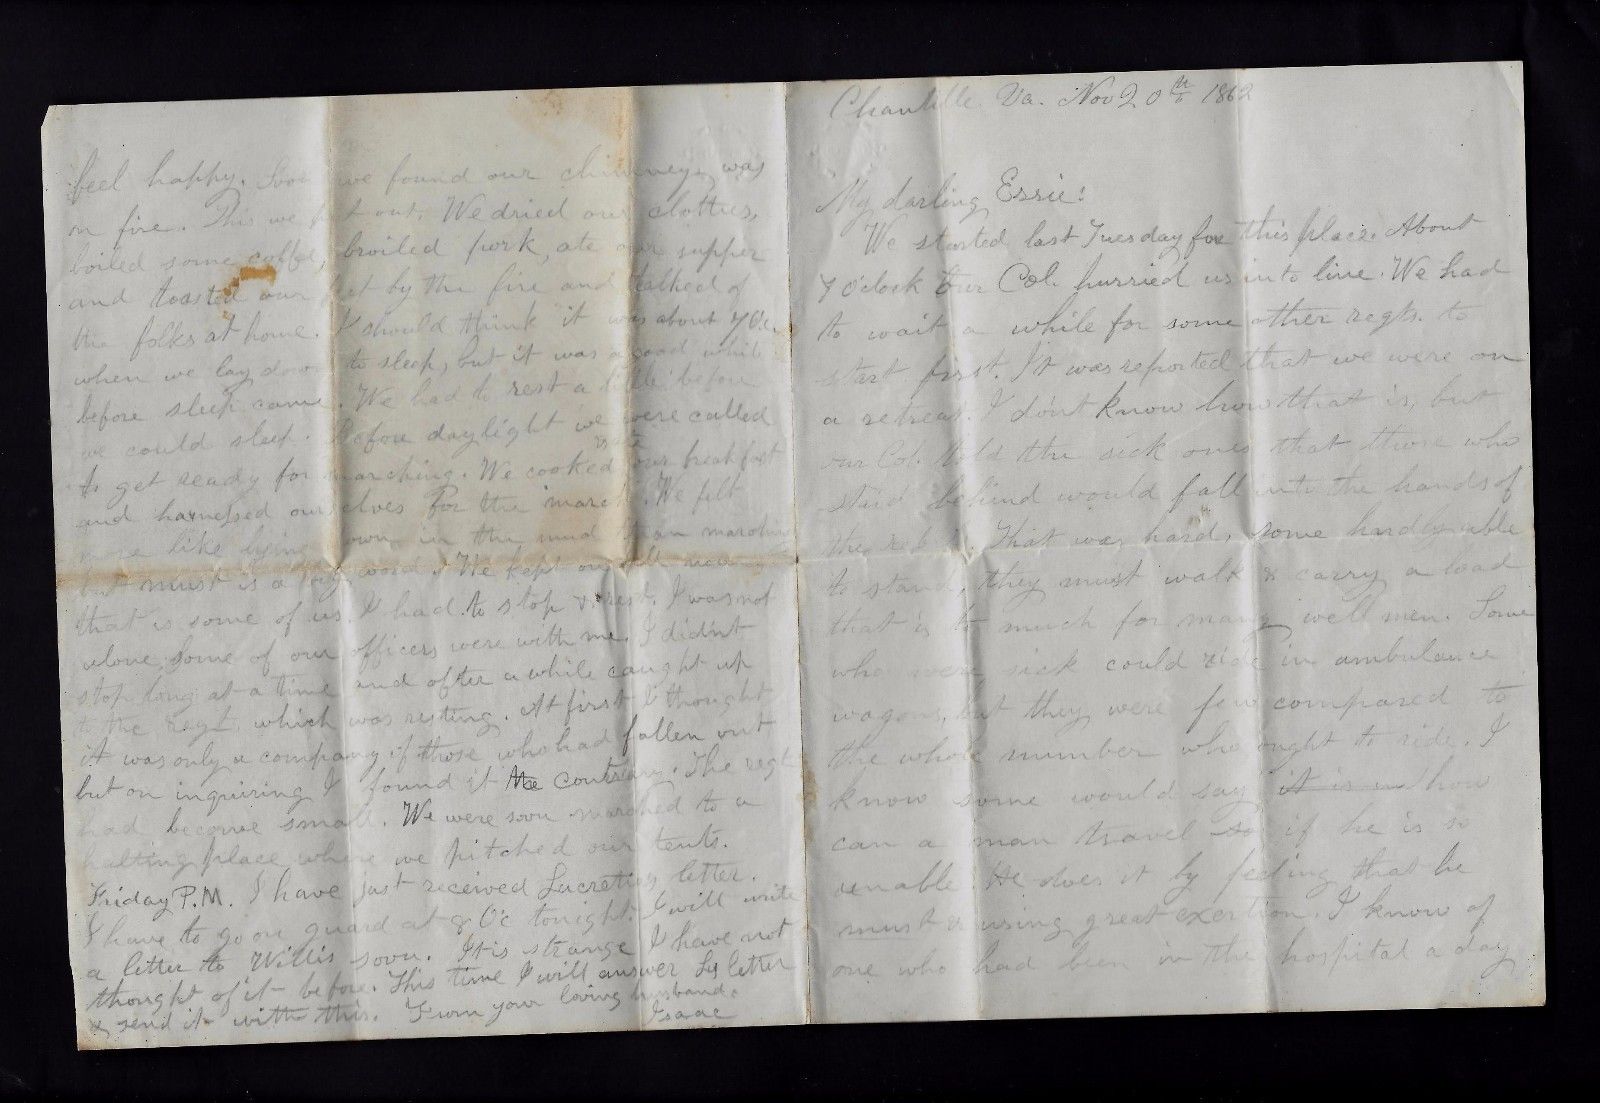 Chantille Va. Nov 20th 1862
My darling Essie:
We started last Tuesday for this place. About
7 O'clock Our Col. hurried us into line. We had
to wait a while for some other regts. to
start first. It was reported that we were on
a retreat. I don't know how that is, but
our Col. told the sick ones that those who
staid behind would fall into the hands of
the rebs. That was hard, some hardly able
to stand, they must walk & carry a load
that is to much for many well men. Some
who were sick could ride in ambulance
wagons, but they were few compared to
the whole number who ought to ride. I
know some would say it is un how
can a man travel so if he is so
unable. He does it by feeling that he
must & using great exertion. I know of
one who had been in the hospital a day
feel happy. Soon we found our chimney was
on fire. This we put out. We dried our clothes,
boiled some coffee, broiled pork, ate our supper
and toasted our feet by the fire and talked of
the folks at home. I should think it was about 7 O'c.
when we lay down to sleep, but it was a good while
before sleep came. We had to rest a little before
we could sleep. Before daylight we were called
to get ready for marching. We cooked our breakfast
and harnessed ourselves for the march. We felt
more like lying down in the mud than marching
but must is a word. We kept on
that is some of us. I had to stop & rest. I was not
alone, some of our officers were with me. I didn't
stop long at a time and after a while caught up
to the regt. which was resting. At first I thought
it was only a company of those who had fallen out
but on inquiring I found it the contrary. The regt
had become small. We were soon marched to a
halting place where we pitched our tents.
Friday P.M. I have just received Lucretias letter.
I have to go on guard at 8 O'c tonight. I will write
a letter to Willis soon. It is strange I have not
thought of it before. This time I will answer Ls letter
& send it with this. From your loving husband.
Isaac